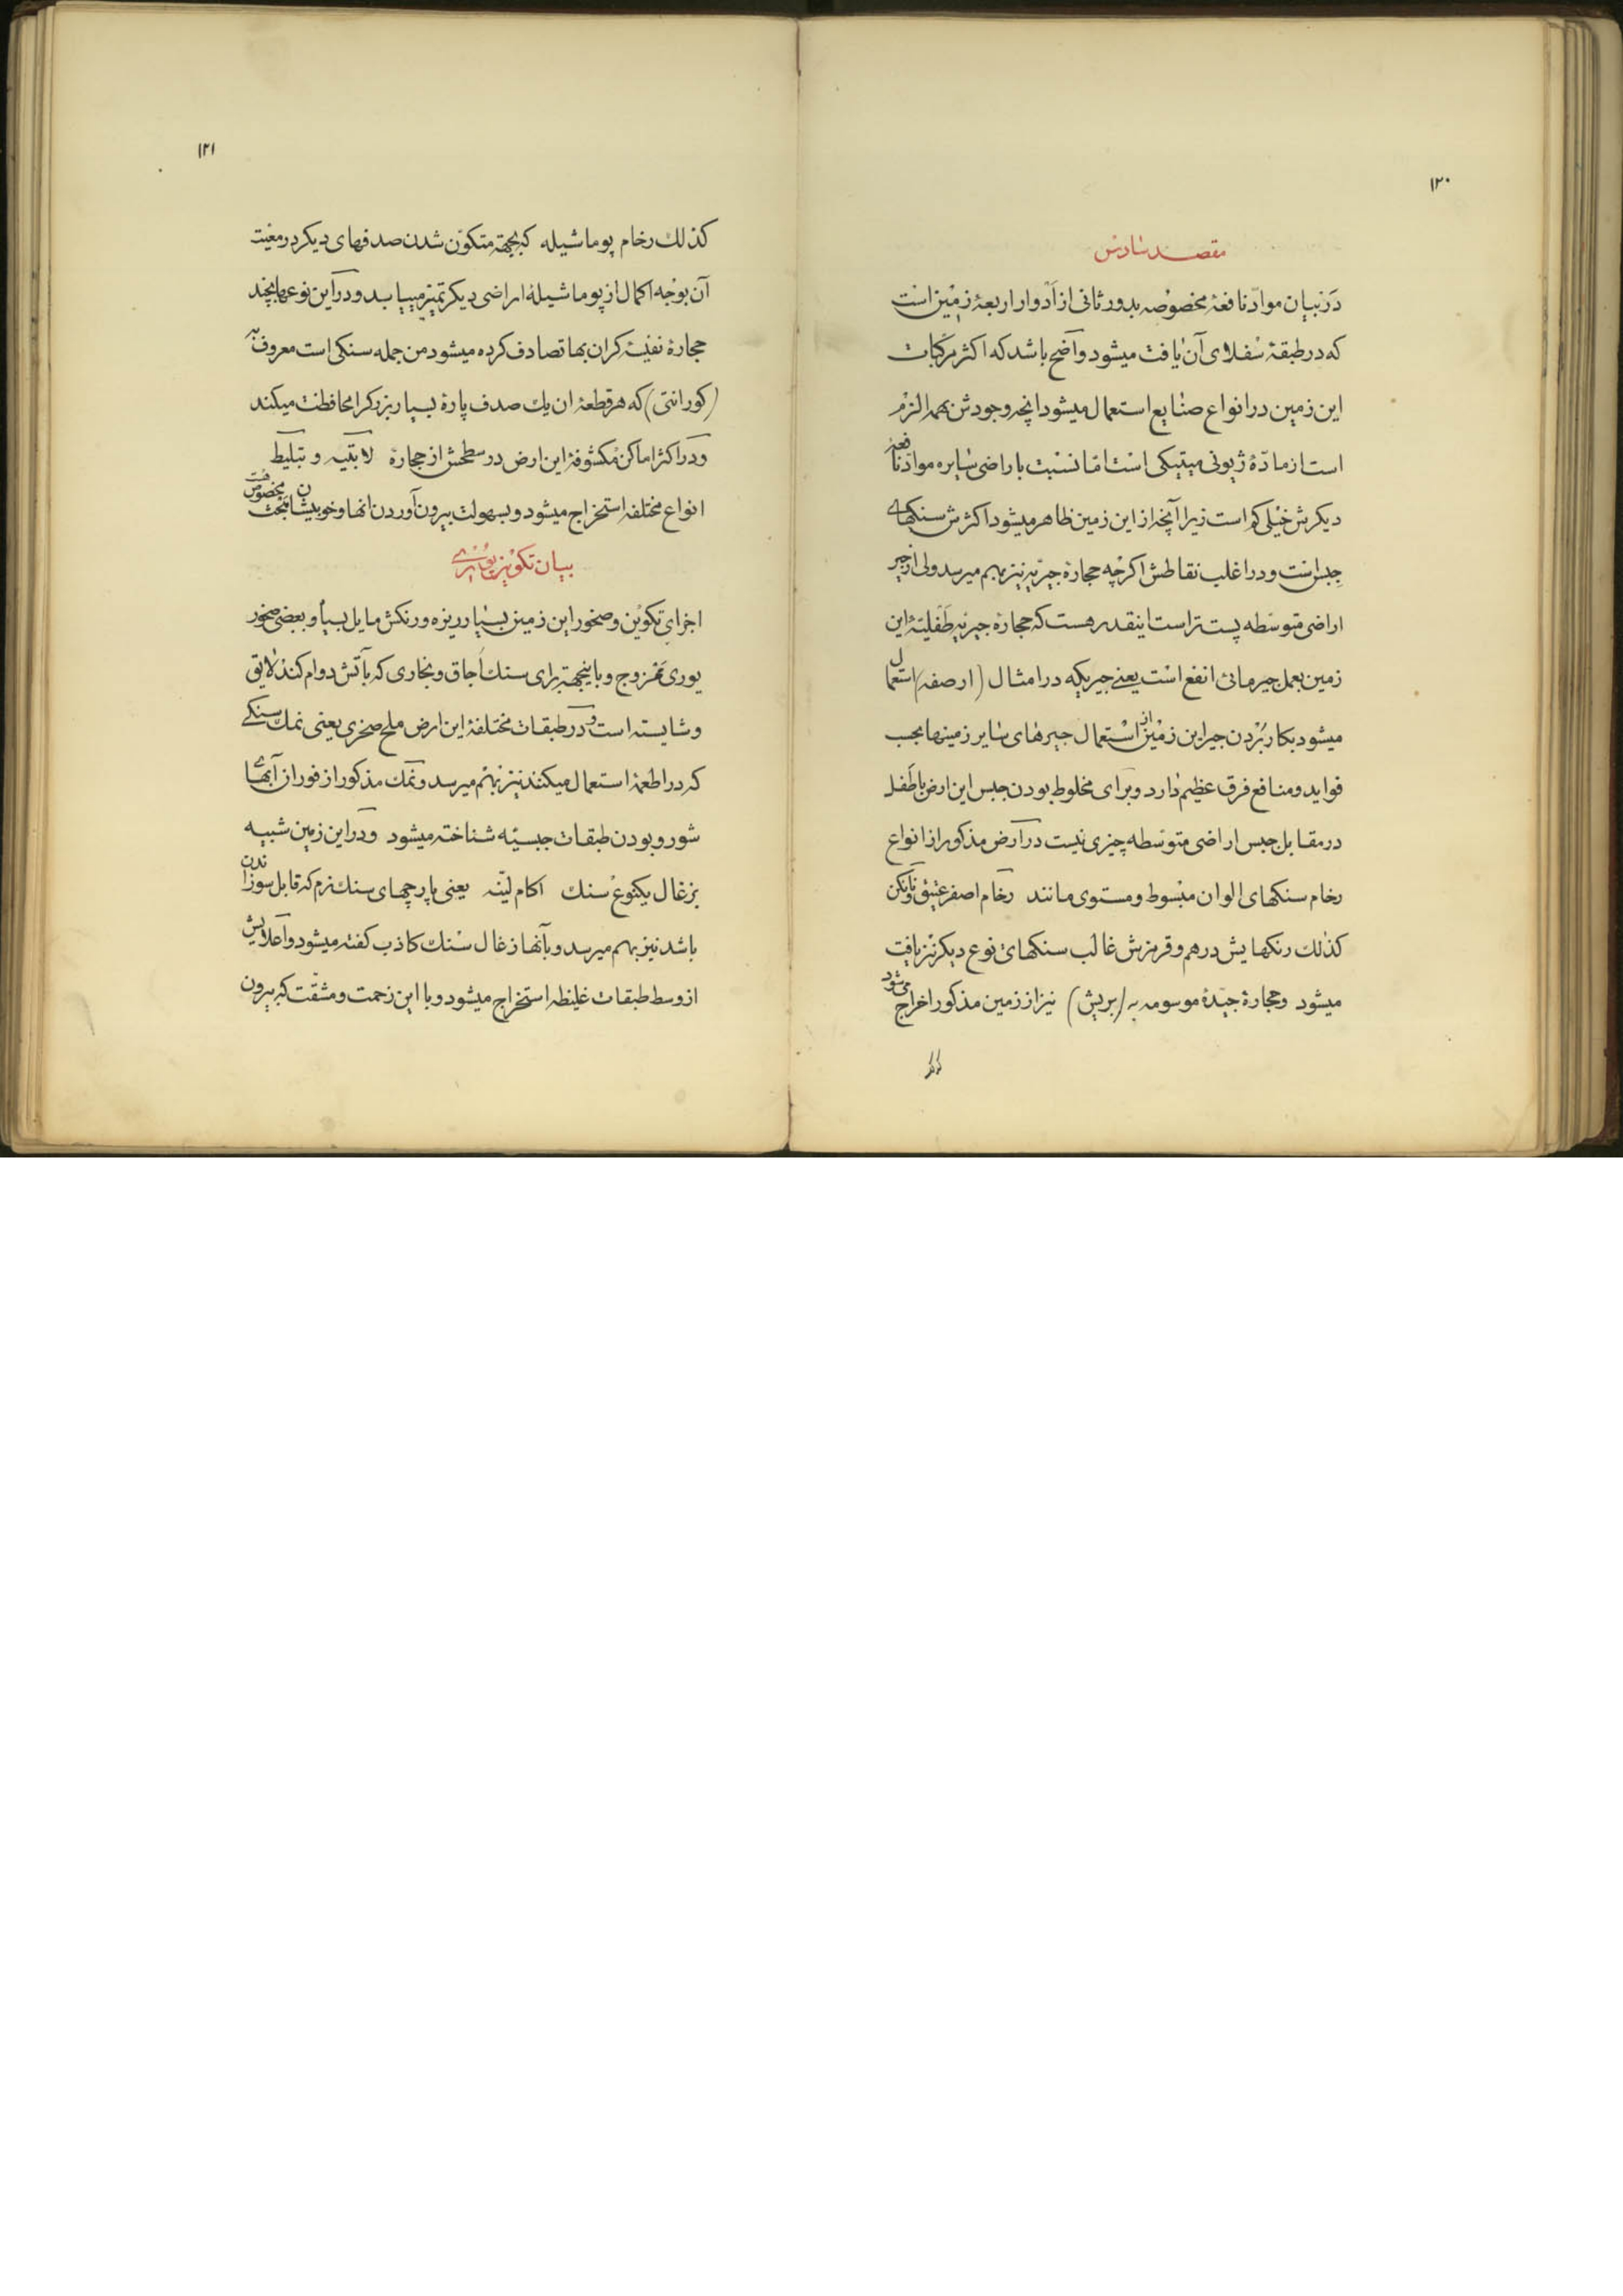 ۱۲۰
مقصد سادس
در بیان موادّ نافعهٔ مخصوصه بدور ثانی از ادوار اربعهٔ زمین است
که در طبقهٔ سفلای آن یافت میشود واضح باشد که اکثر مرکبات
این زمین در انواع صنایع استعمال میشود انچه وجودش بهمه الزم
است از مادّهٔ ژیونی میتیکی است امّا نسبت باراضی سایره موادّ نافعهٔ
دیکرش خیلی کم است زیرا آنچه از این زمین ظاهر میشود اکثرش سنکهای
جبس است و در اغلب نقاطش اکرچه حجارهٔ جیرّیه نیز بهم میرسد ولی از جیر
اراضی متوسّطه پست تر است اینقدر هست که حجارهٔ جیریّه طفلیّهٔ این
زمین بعمل جیر مائی انفع است یعنی جیریکه در امثال (ارصفه) استعمال
میشود بکار بردن جیر این زمین از استعمال جیرهای سایر زمینها بحسب
فواید و منافع فرق عظیم دارد و برای مخلوط بودن جبس این ارض با طفل
در مقابل جبس اراضی متوسّطه چیزی نیست در ارض مذکور از انواع
رخام سنکهای الوان مبسوط و مستوی مانند رخام اصفر عتیق
کذلك رنکهایش درهم و قرمزش غالب سنکهای نوع دیکر نیز یافت
میشود و حجارهٔ جیّدهٔ موسومه به (بریش) نیز از زمین مذکور اخراج می شود
کذلك
۱۲۱
کذلك رخام پوماشیله که بجهة متکوّن شدن صدفهای دیکر در معیّت
آن بوجه اکمال از پوماشیلهٔ اراضی دیکر تمیز مییابد و در این نوعها بچند
حجارهٔ نفیسهٔ کران بها تصادف کرده میشود من جمله سنکی است معروف به
(کورانتی) که هر قطعهٔ ان یك صدف پارهٔ بسیار بزرکرا محافظت میکند
و در اکثر اماکن مکشوفهٔ این ارض در سطحش از حجارهٔ لابتیه و تبلیط
انواع مختلفه استخراج میشود و بسهولت بیرون آوردن انها و خوبیشان مبحث مخصوص هست
بیان تکوین پوئری
اجزای تکوین و صخور این زمین بسیار ریزه و رنکش مایل بسیاه و بعضی صخور
پوری ممزوج و باینجهة برای سنك اجاق و بخاری که بآتش دوام کند لایق
و شایسته است و در طبقات مختلفهٔ این ارض ملح صخری یعنی نمك سنکی
که در اطعمهٔ استعمال میکنند نیز بهم میرسد و نمك مذکور از فوران آبهای
شور و بودن طبقات جبسیّه شناخته میشود و در این زمین شبیه
بزغال یکنوع سنك اکام لیّنه یعنی پارچهای سنك نرم که قابل سوزاندن
باشد نیز بهم میرسد و بآنها زغال سنك کاذب کفته میشود و اعلایش
از وسط طبقات غلیظه استخراج میشود و با این زحمت و مشقّت که بیرون